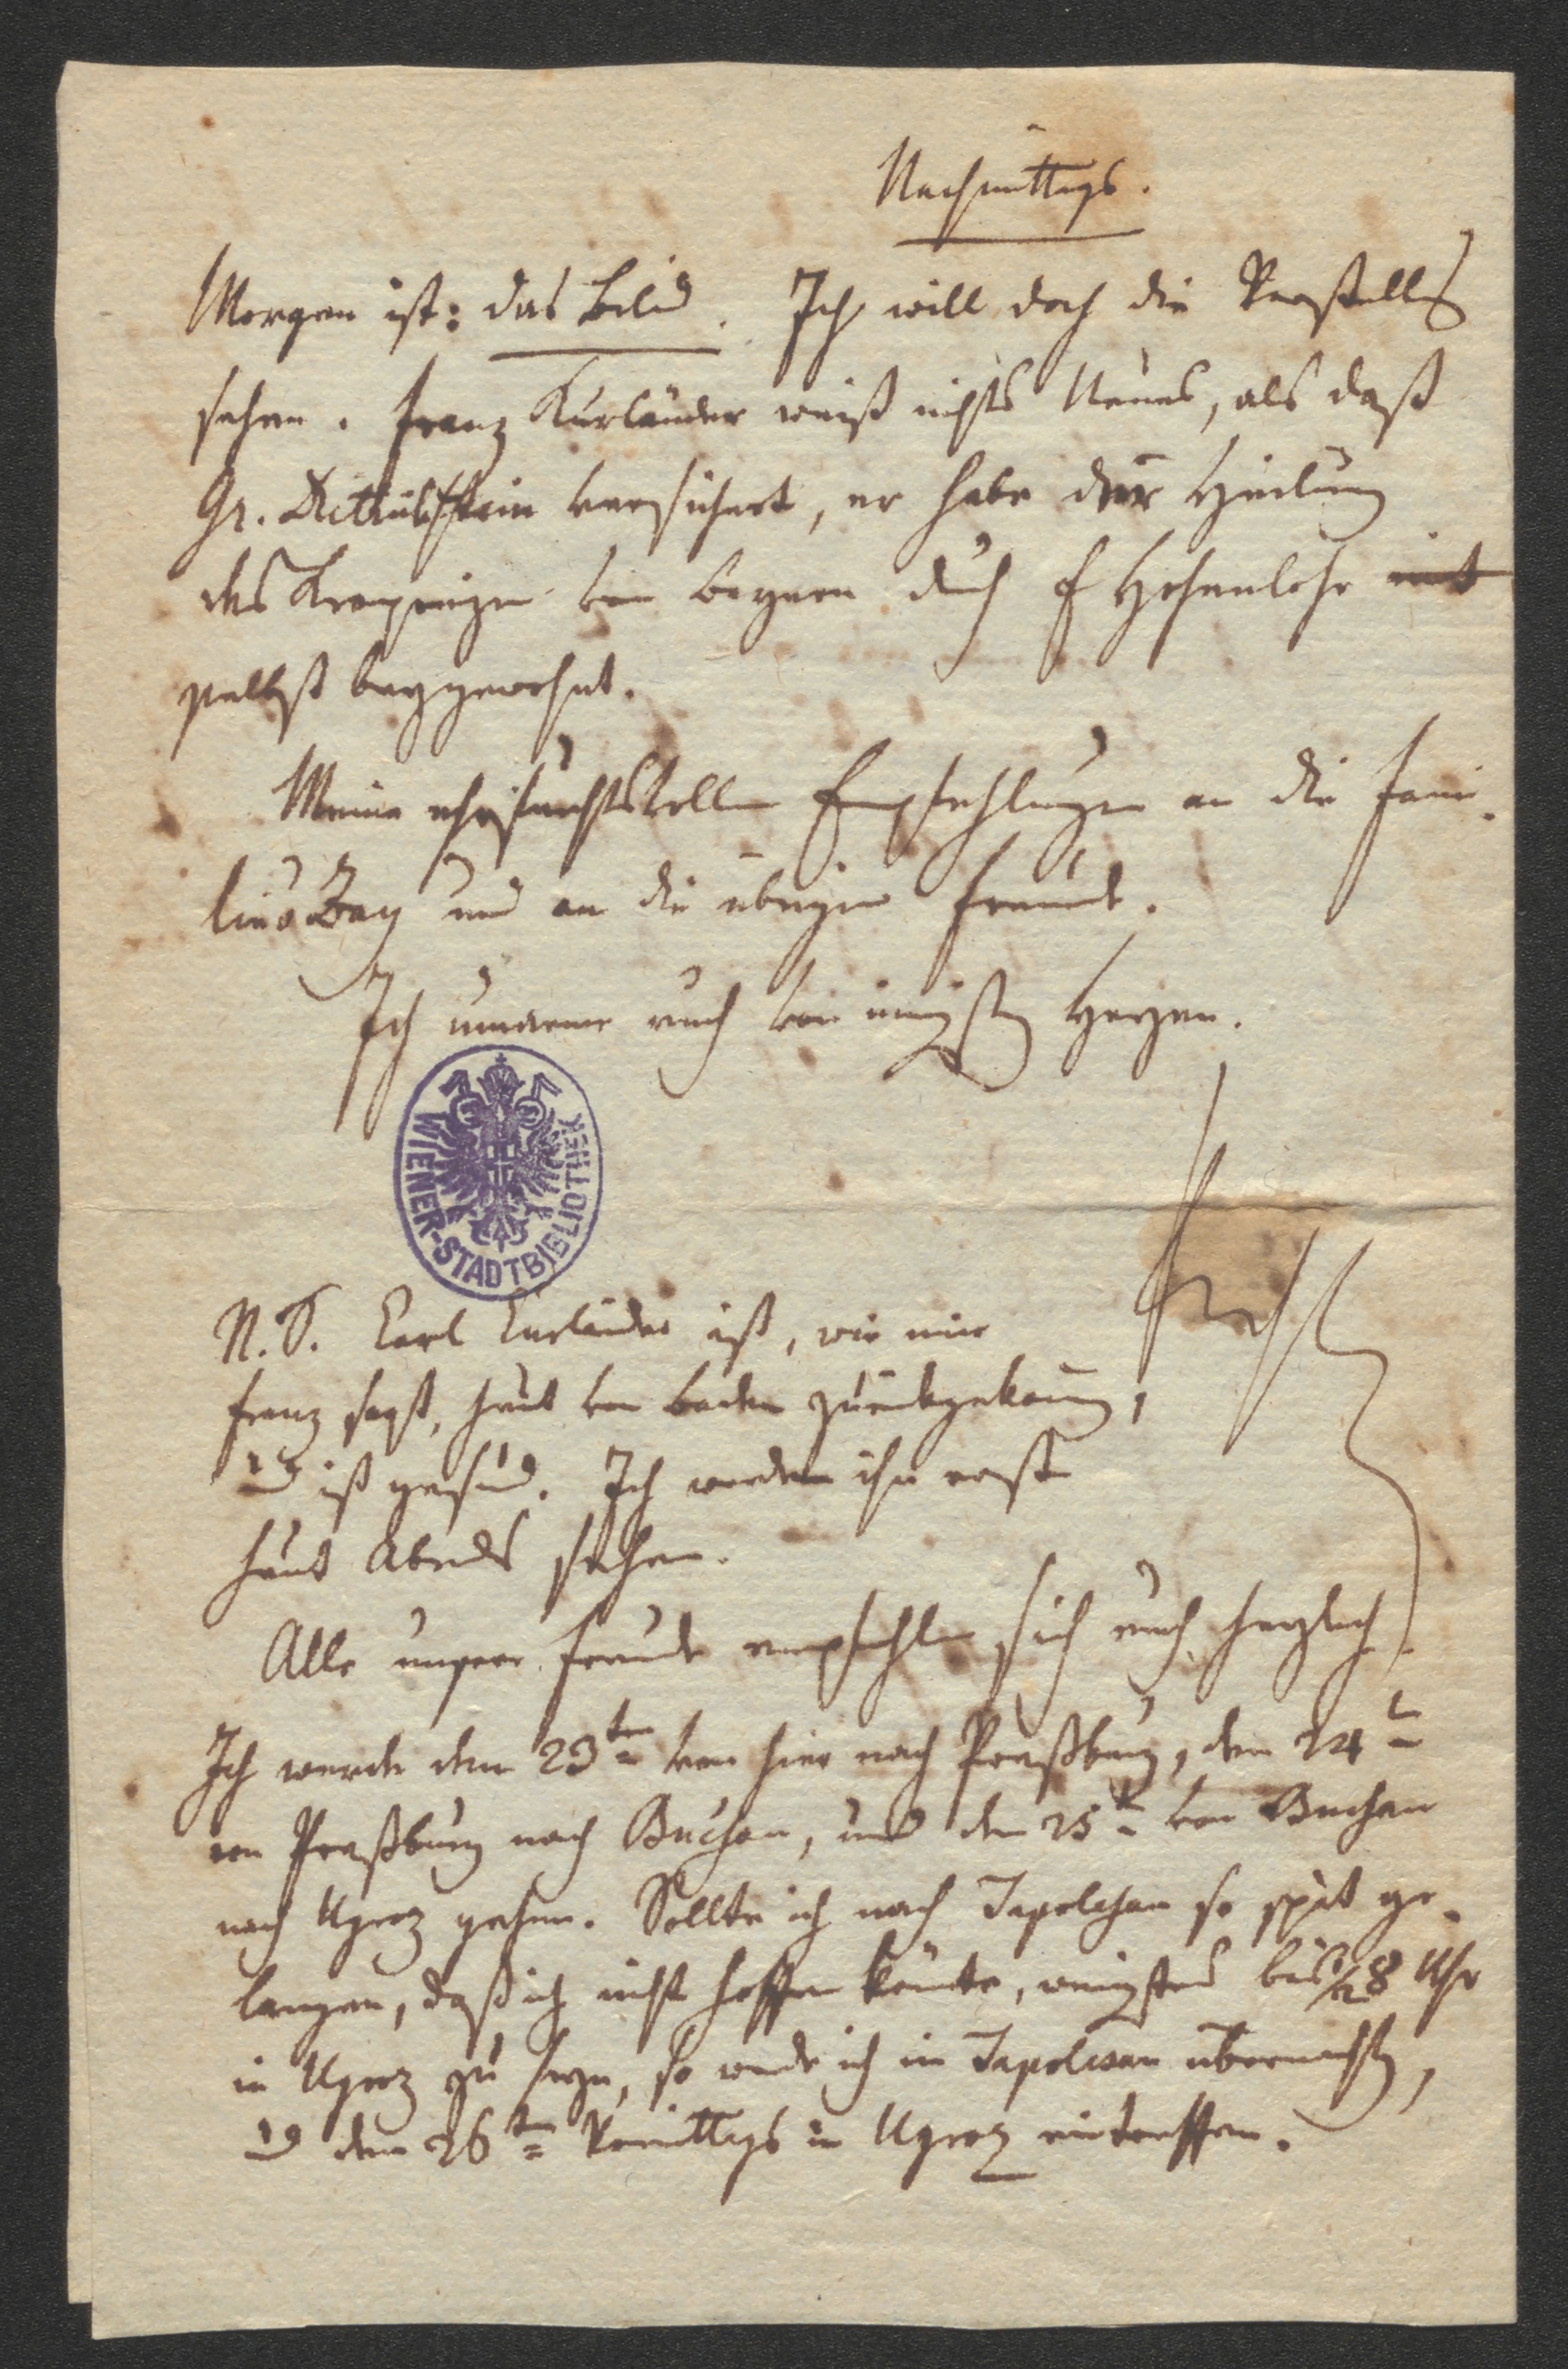 Nachmittags.
Morgen ist: das Bild. Ich will doch die Vorstellg
sehen. Franz Kurländer weiß nichts Neues, als daß
Gr. Dietrichstein versichert, er habe der Heilung
des Kronprinzen von Bayern durch F Hohenlohe mit
selbst beygewohnt.
Meine ehrfurchtsvollen Empfehlungen an die Fami-
lie Zay und an die übrigen Freunde.
Ich umarme euch von innigsten Herzen.
WIENER-STADTBIBLIOTHEK
N.S. Carl Curländer ist, wie mir
Franz sagt, heut von Baden zurückgekommen,
und ist gesund. Ich werde ihn erst
heut Abends sehen.
Alle unsere Freunde empfehlen sich euch herzlich.
Ich werde den 23ten von hier nach Preßburg, den 24ten
von Preßburg nach Buchan, und den 25ten von Buchan
nach Ugrocz gehen. Sollte ich nach Tapolchan so spät ge-
langen, daß ich nicht hoffen könnte, wenigstens bis 1/2 8 Uhr
in Ugrocz zu seyn, so werde ich in Tapolcsan übernachten,
und den 26ten Vormittags in Ugrocz eintreffen.